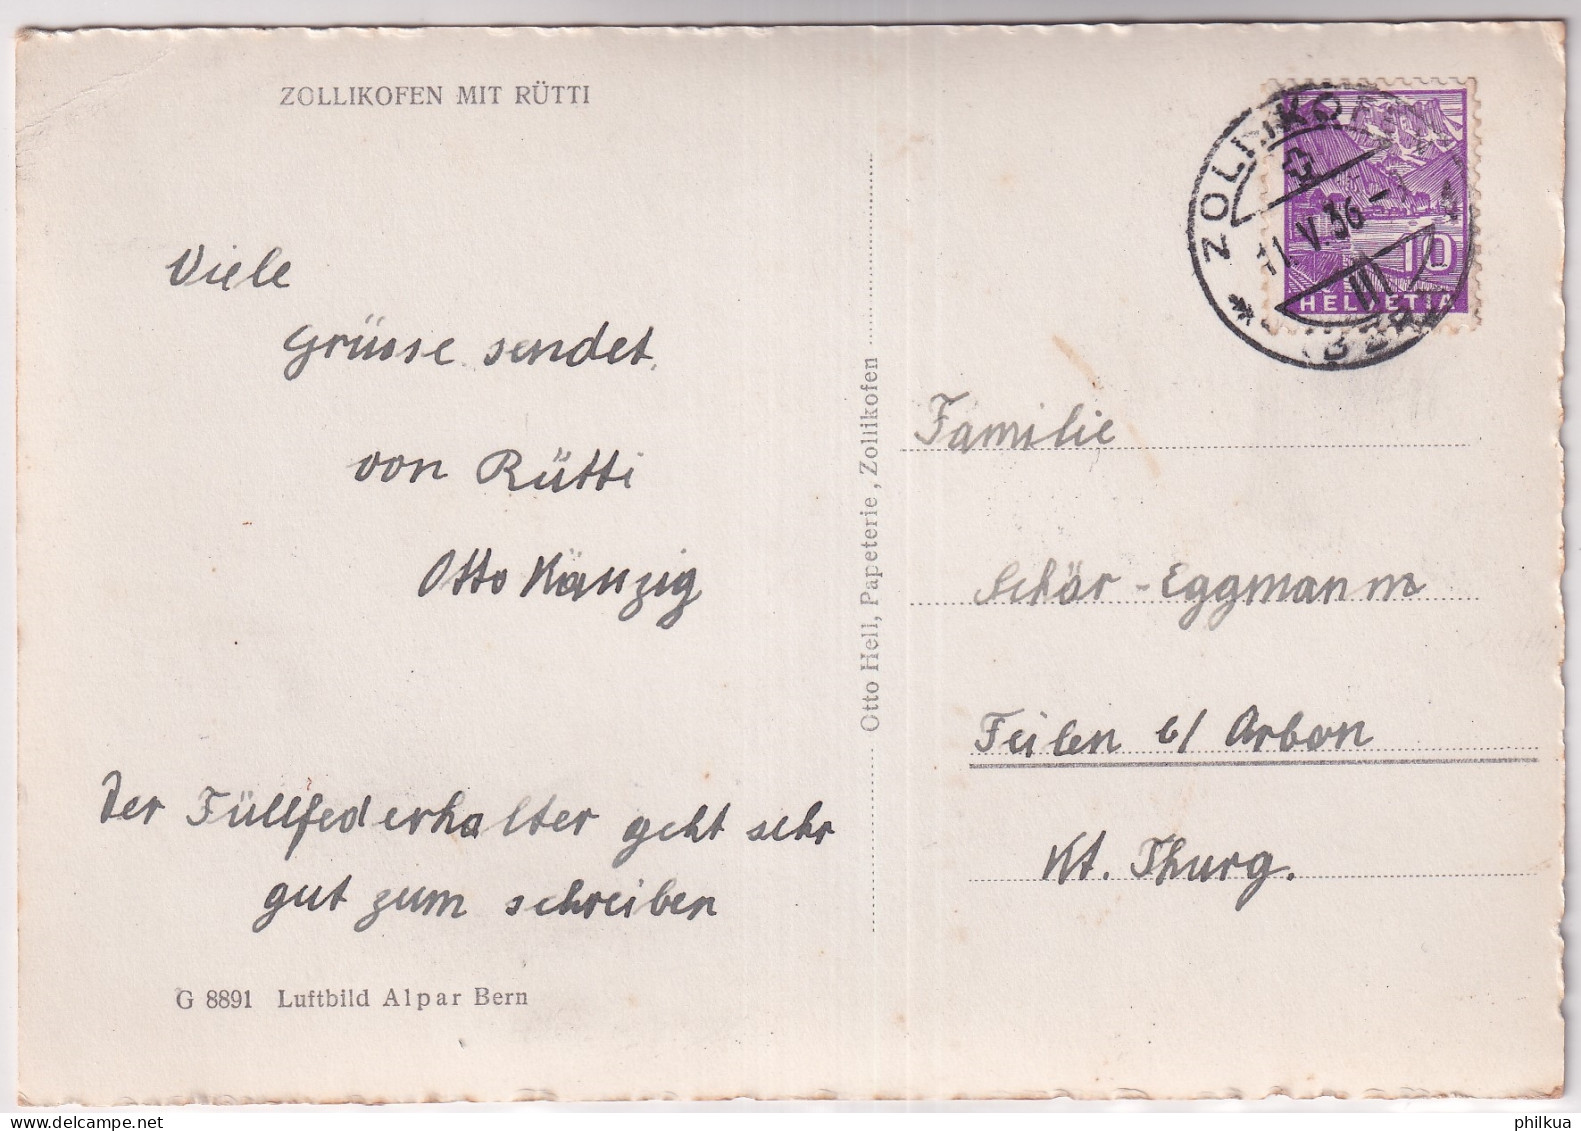 ZOLLIKOFEN MIT RÜTTI
Viele
Grüsse sendet
von Rütti
Otto Känzig
Der Füllfederhalter geht sehr
gut zum schreiben
G 8891 Luftbild Alpar Bern
Otto Hell, Papeterie, Zollikofen
ZOLLIKOFEN
11.V.36
(BERN)
10
HELVETIA
Familie
Schär-Eggmann
Feilen b/ Arbon
Kt. Thurg.
philkua